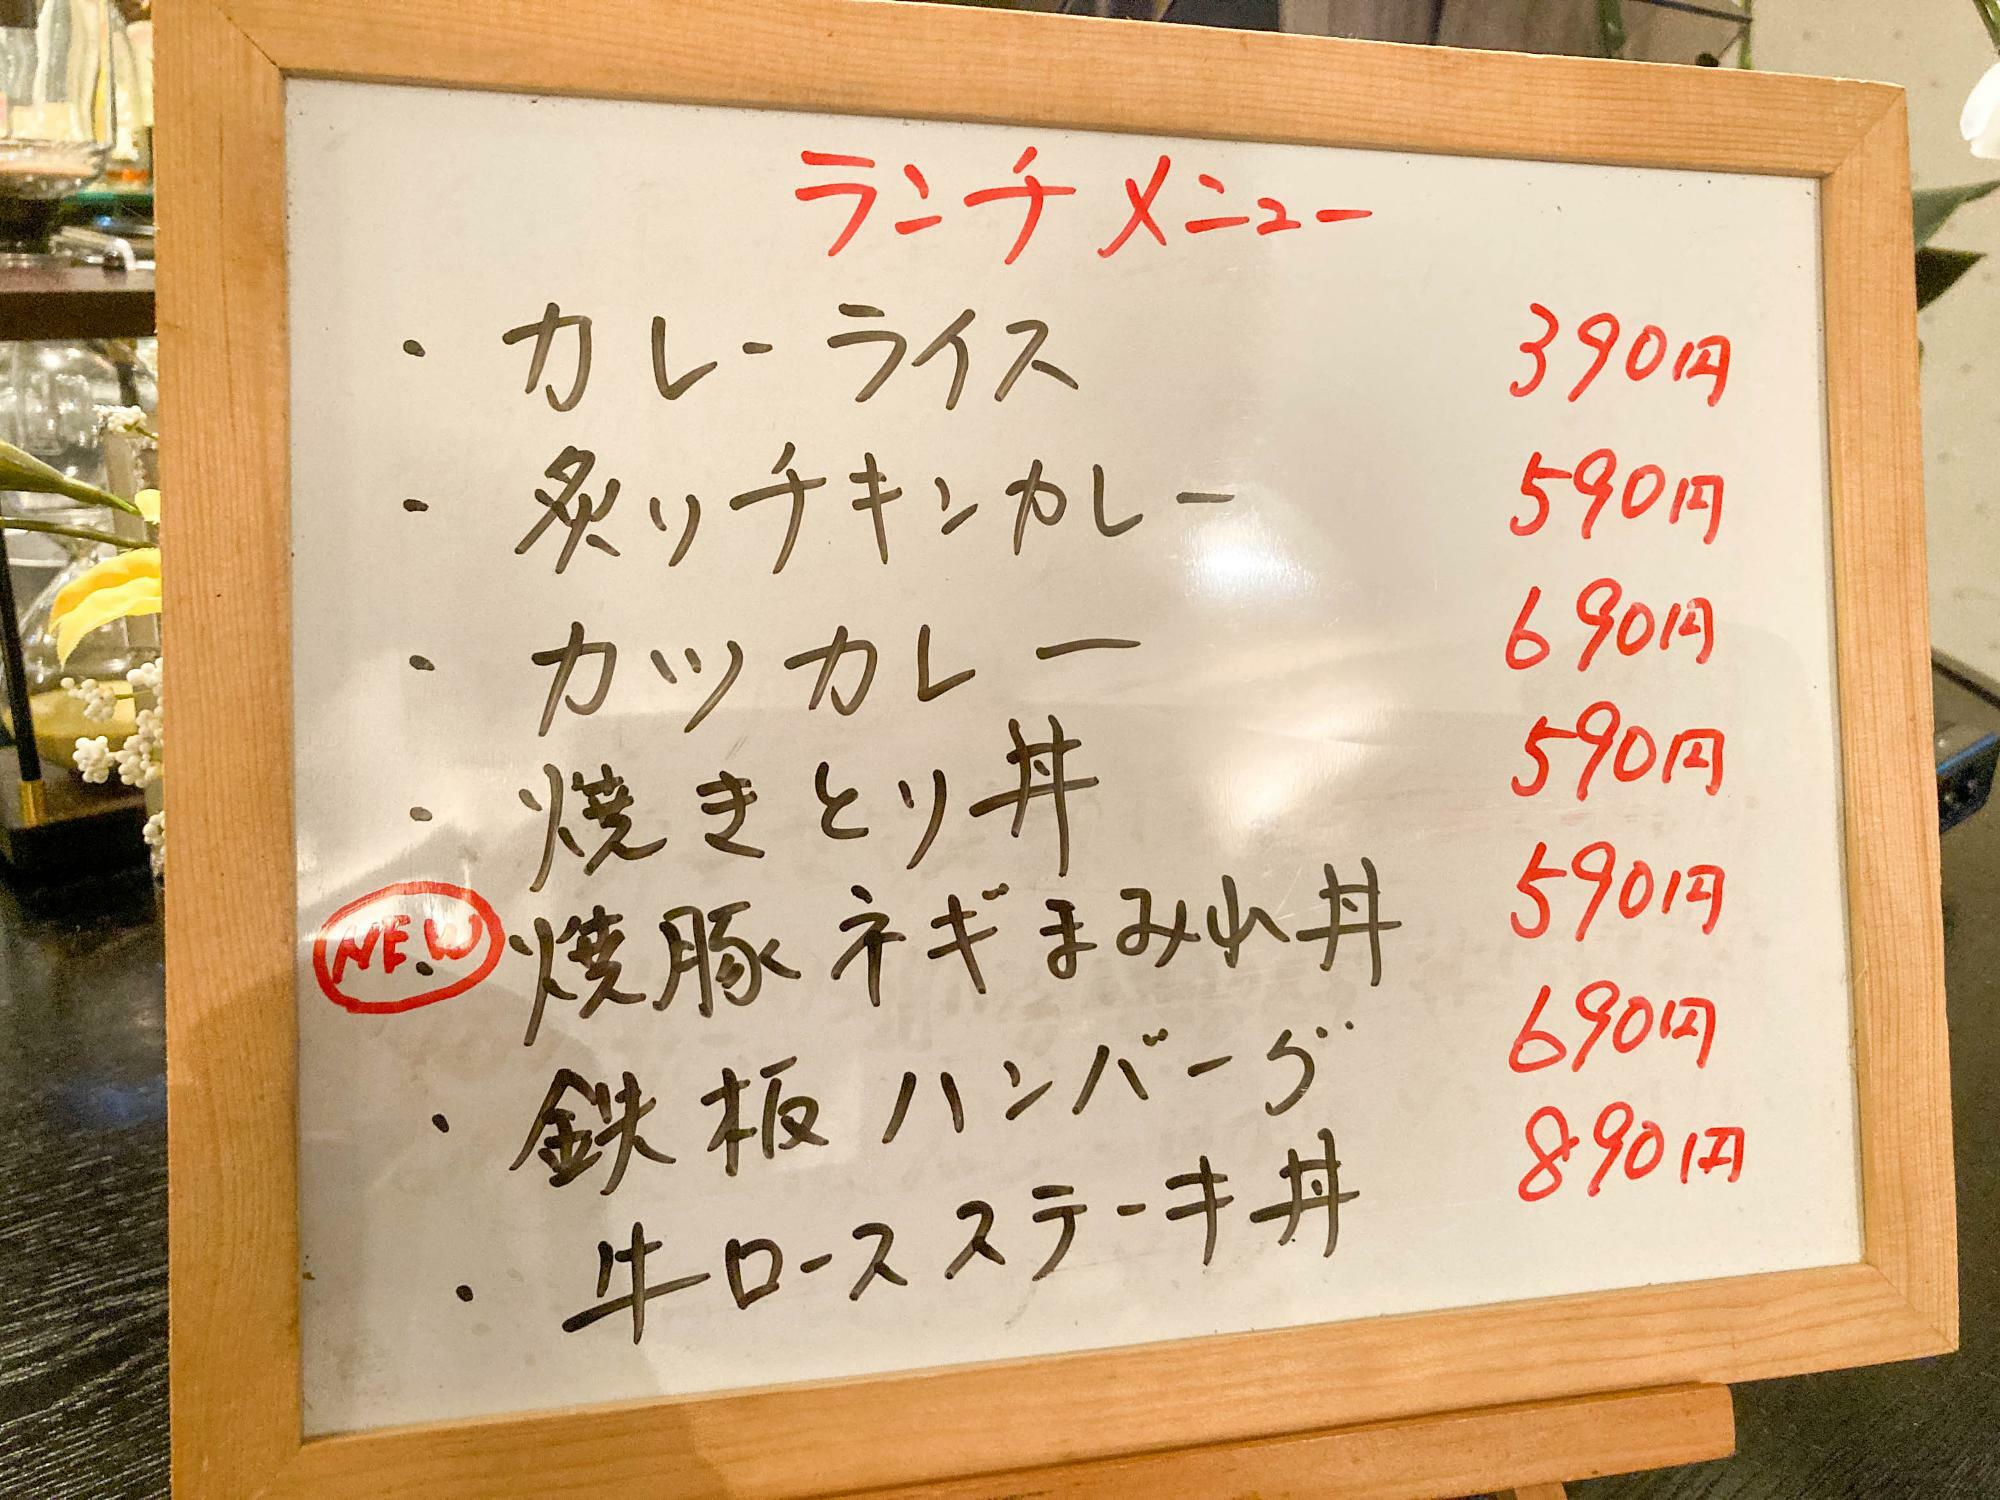 ランチメニュー
・カレーライス 390円
・炙りチキンカレー 590円
・カツカレー 690円
・焼きとり丼 590円
NEW・焼豚ネギまみれ丼 590円
・鉄板ハンバーグ 690円
・牛ロースステーキ丼 890円